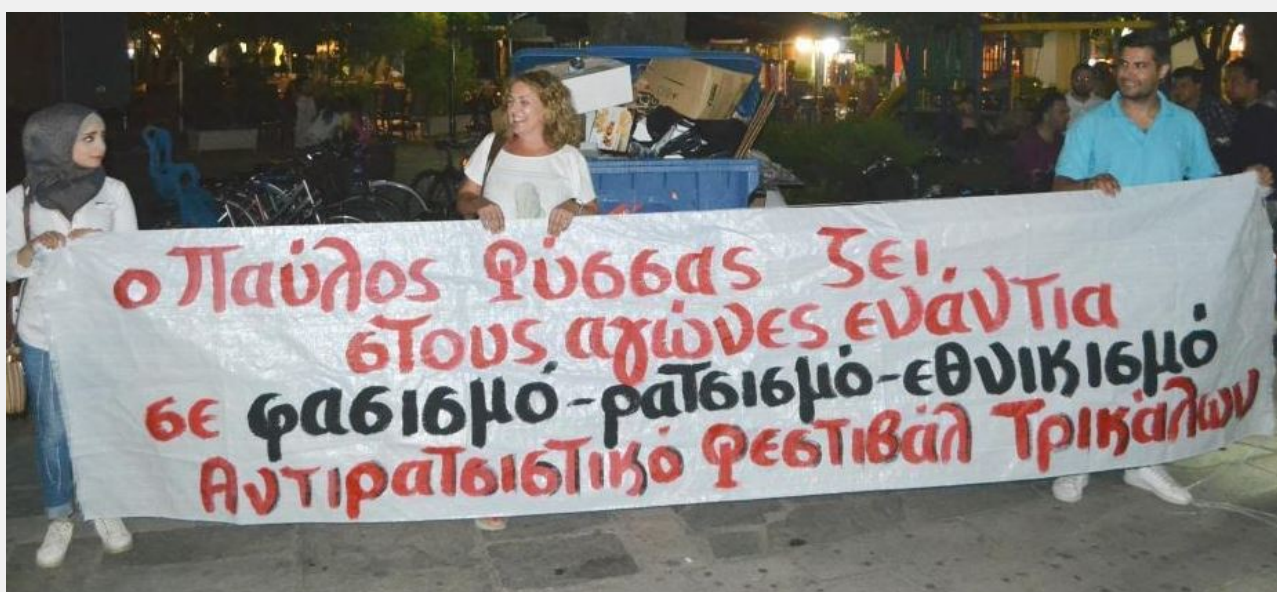 ο Παύλος Φύσσας ζει
στους αγώνες ενάντια
σε φασισμό-ρατσισμό-εθνικισμό
Αντιρατσιστικό Φεστιβάλ Τρικάλων